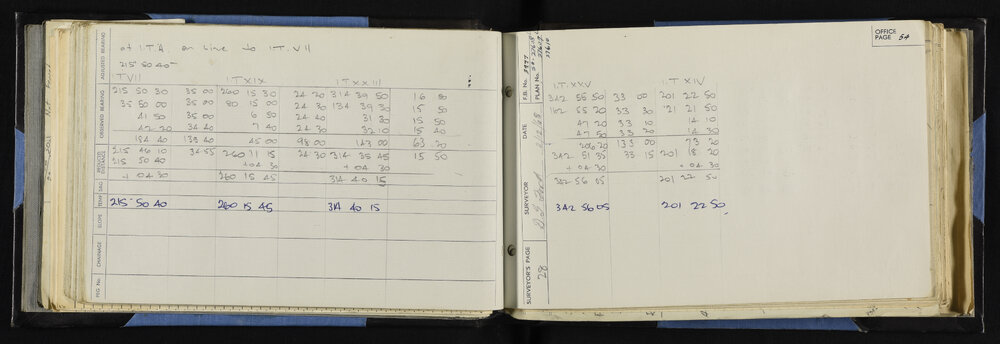 OFFICE PAGE 54
at I.T.A. on line to I.T. VII
215 50 40
ITVII I.TXIX I.TXXIII
215 50 30 35 00 260 15 30 24 20 314 39 50 16 00
35 50 00 35 00 80 15 00 24 30 134 39 30 15 50
41 50 35 00 6 50 24 40 31 30 15 50
42 20 34 40 7 40 24 30 32 10 15 40
184 40 139 40 45 00 98 00 143 00 63 20
215 46 10 34 55 260 11 15 24 30 314 35 45 15 50
215 50 40 +04 30 +04 30
+04 30 260 15 45 314 40 15
215 50 40 260 15 45 314 40 15
ADJUSTED BEARING
OBSERVED BEARING
REDUCED DISTANCE
TEMP.
SAG
SLOPE
CHAINAGE
PEG No.
F.B. No. 3977
PLAN No.
27610
DATE 2/12/65
SURVEYOR
SURVEYOR'S PAGE 28
I.T. XXV I.T XIV
342 55 50 33 00 201 22 50
162 55 20 33 30 21 21 50
47 20 33 10 14 10
47 50 33 20 14 30
206 20 133 00 73 20
342 51 35 33 15 201 18 20
+04 30 +04 30
342 56 05 201 22 50
342 56 05 201 22 50